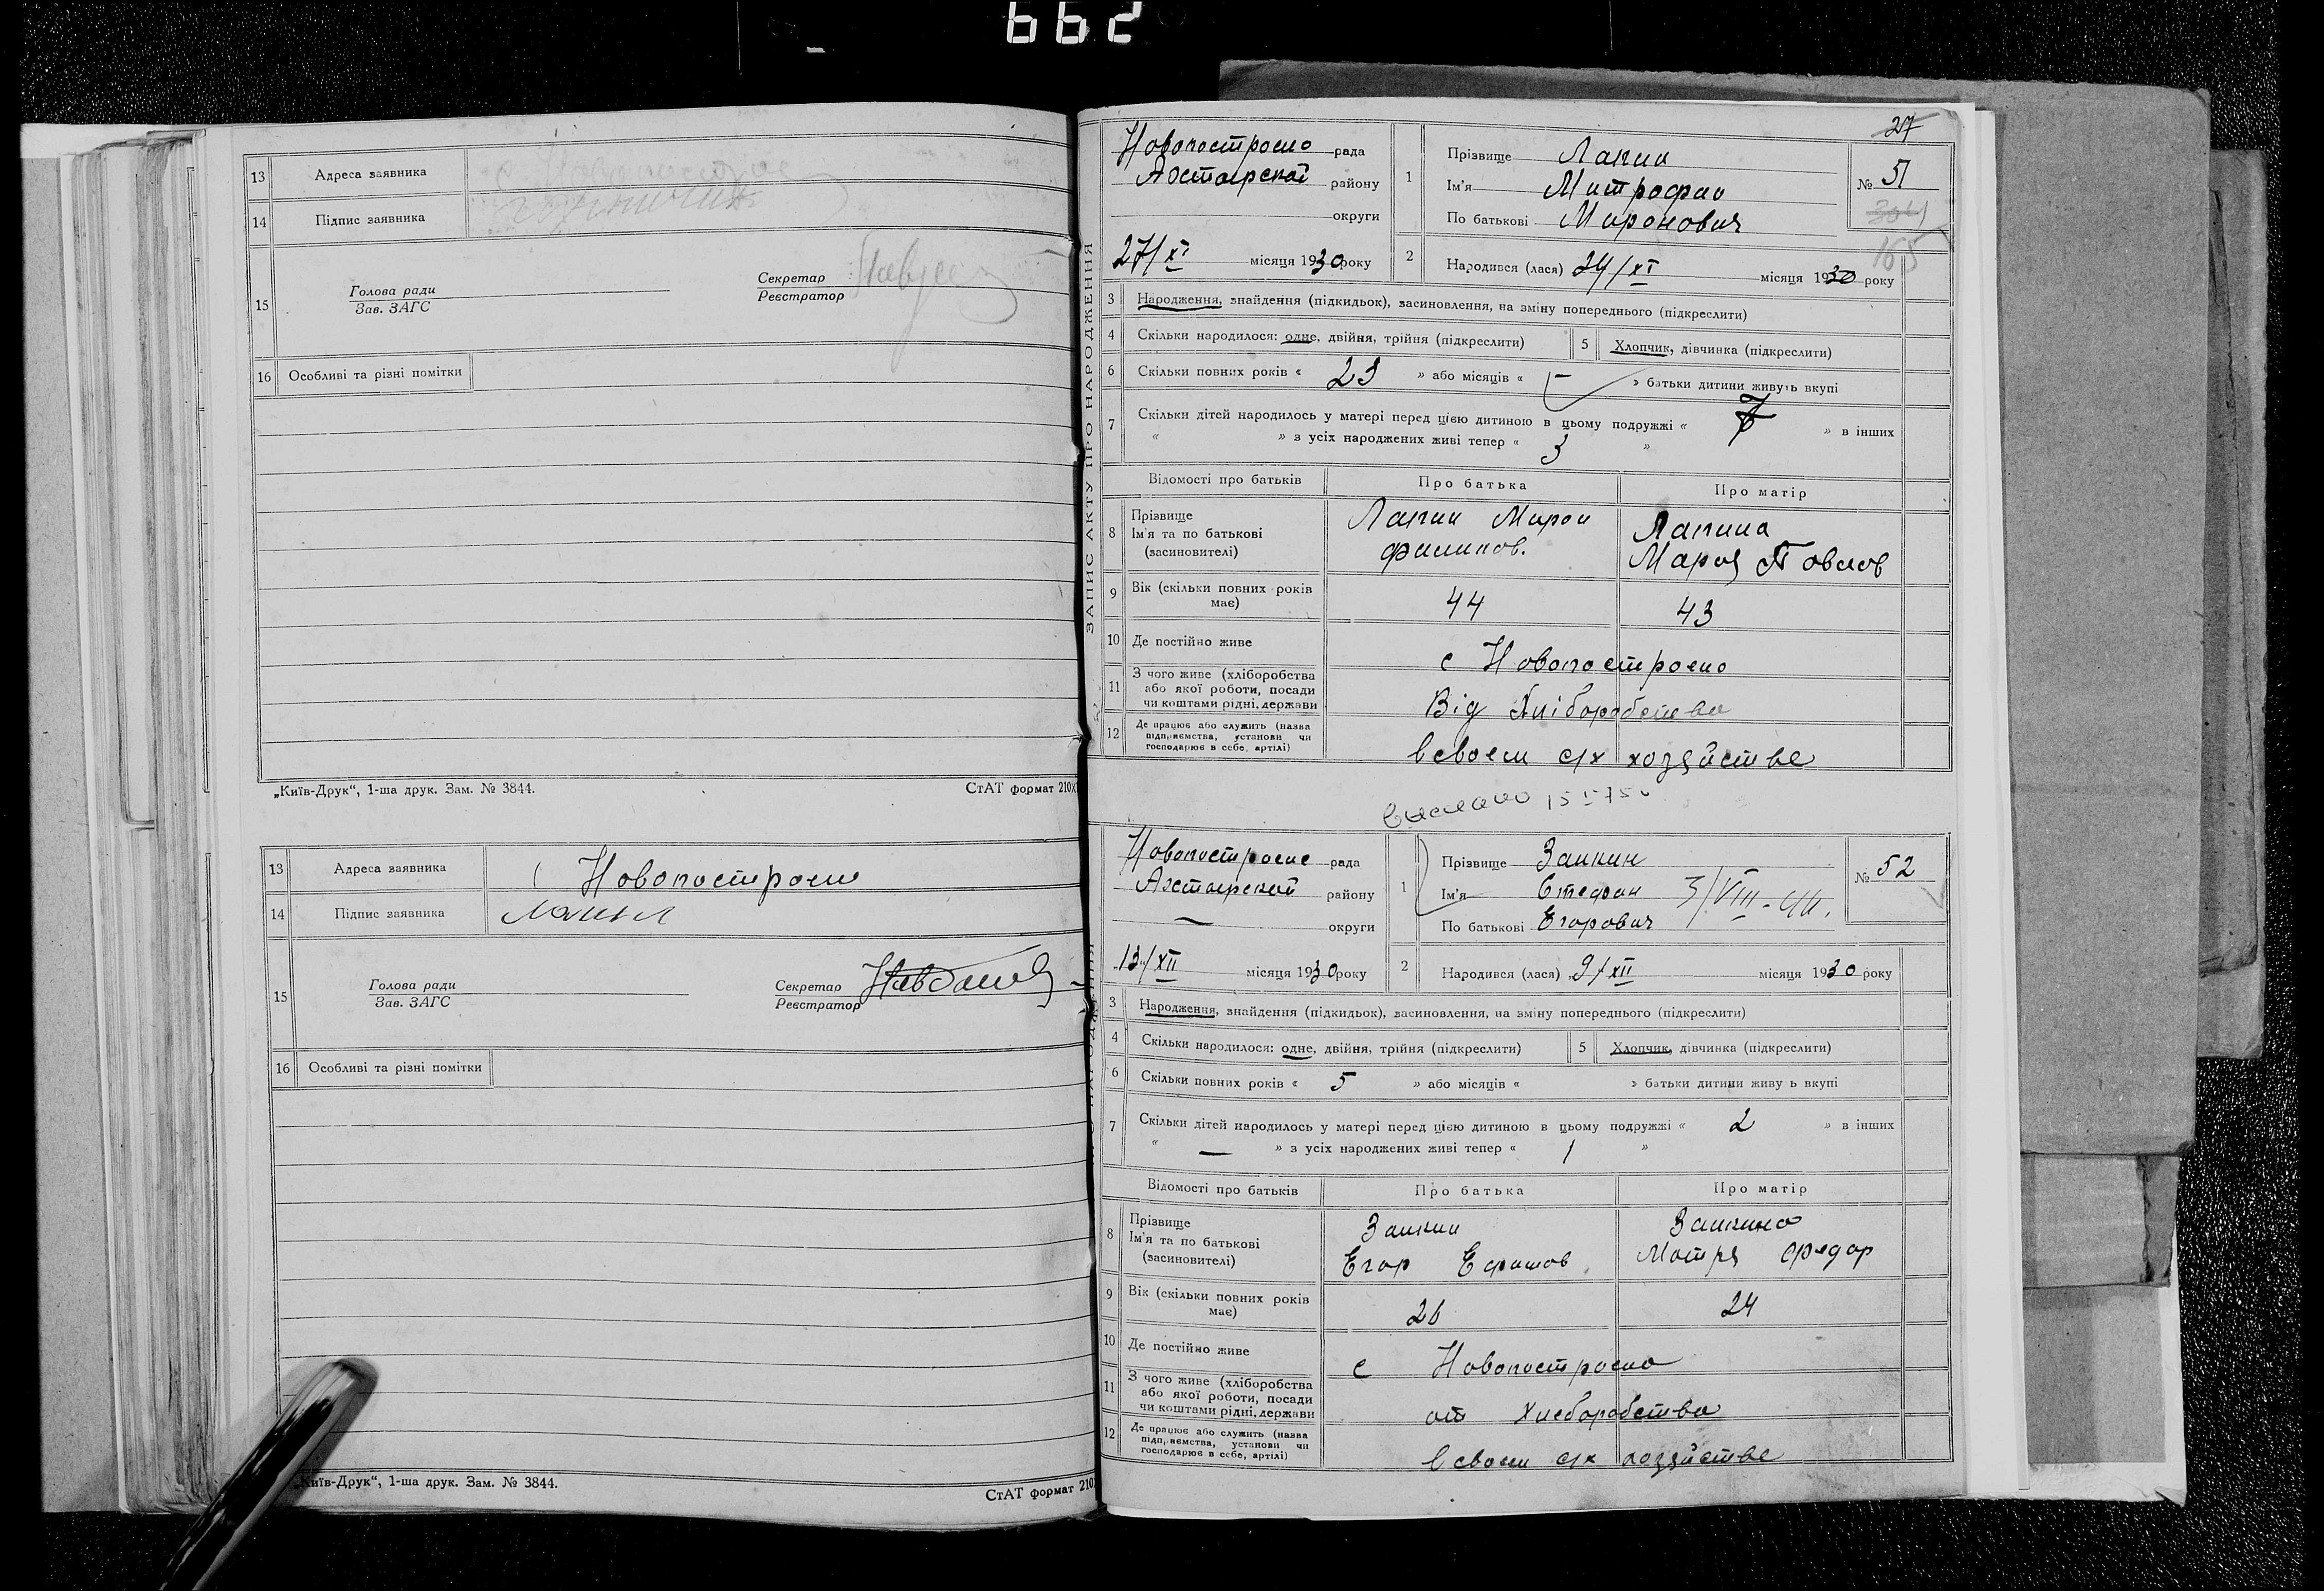 662
13 Адреса заявника
14 Підпис заявника
15 Голова ради
Зав. ЗАГС
Секретар
Реєстратор
16 Особливі та різні помітки
„Київ-Друк“, 1-ша друк. Зам. № 3844.
СтАТ формат 210X
13 Адреса заявника Новопостроено
14 Підпис заявника Лапин
15 Голова ради
Зав. ЗАГС
Секретар
Реєстратор
16 Особливі та різні помітки
„Київ-Друк“, 1-ша друк. Зам. № 3844.
СтАТ формат 210
ЗАПИС АКТУ ПРО НАРОДЖЕННЯ
27
Новопостроено рада
Ахтырской району
округи
27/XI місяця 1930 року
1 Прізвище Лапин
Ім'я Митрофан
По батькові Миронович
№ 51
304
165
2 Народився (лася) 24/XI місяця 1930 року
3 Народження, знайдення (підкидьок), засиновлення, на зміну попереднього (підкреслити)
4 Скільки народилося: одне, двійня, трійня (підкреслити) 5 Хлопчик, дівчинка (підкреслити)
6 Скільки повних років « 23 » або місяців « – » батьки дитини живуть вкупі
7 Скільки дітей народилось у матері перед цією дитиною в цьому подружжі « 7 » в інших
« » з усіх народжених живі тепер « 3 »
Відомості про батьків Про батька Про матір
8 Прізвище
Ім'я та по батькові
(засиновителі)
Лапин Мирон
Филипов.
Лапина
Мария Павлов
9 Вік (скільки повних років має) 44 43
10 Де постійно живе с Новопостроено
11 З чого живе (хліборобства
або якої роботи, посади
чи коштами рідні, держави
Від Хліборобства
12 Де працює або служить (назва
підприємства, установи чи
господарює в себе, артілі)
в своем с/х хозяйстве
выслано
Новопостроене рада
Ахтырской району
— округи
13/XII місяця 1930 року
1 Прізвище Заикин
Ім'я Стефан 3/VIII-
По батькові Егорович
№ 52
2 Народився (лася) 9/XII місяця 1930 року
3 Народження, знайдення (підкидьок), засиновлення, на зміну попереднього (підкреслити)
4 Скільки народилося: одне, двійня, трійня (підкреслити) 5 Хлопчик, дівчинка (підкреслити)
6 Скільки повних років « 5 » або місяців « » батьки дитини живу ь вкупі
7 Скільки дітей народилось у матері перед цією дитиною в цьому подружжі « 2 » в інших
« — » з усіх народжених живі тепер « 1 »
Відомості про батьків Про батька Про матір
8 Прізвище
Ім'я та по батькові
(засиновителі)
Заикин
Егор Ефимов
Заикина
Мотря Федор
9 Вік (скільки повних років має) 26 24
10 Де постійно живе с Новопостроено
11 З чого живе (хліборобства
або якої роботи, посади
чи коштами рідні, держави
от Хлеборобства
12 Де працює або служить (назва
підприємства, установи чи
господарює в себе, артілі)
в своем с/х хозяйстве